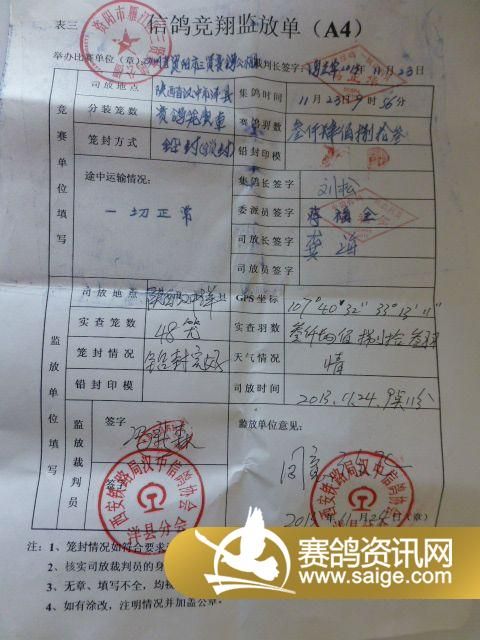 表三 信鸽竞翔监放单（A4）
举办比赛单位（章） 裁判长签字： 2013年11月23日
竞赛单位填写
司放地点 陕西省汉中市洋县 集鸽时间 11月23日9时56分
分装笼数 赛鸽笼 集鸽羽数 叁仟肆佰捌拾叁
笼封方式 铅封 铅封印模
途中运输情况： 集鸽长签字 刘松
一切正常 委派员签字
司放长签字 龚海
司放员签字
监放单位填写
司放地点 GPS坐标 107°40′32″ 33°13′11″
实查笼数 48笼 实查羽数 叁仟肆佰捌拾叁羽
笼封情况 铅封完好 天气情况 晴
铅封印模 司放时间 2013.11.24.9
监放裁判员 签字 监放单位意见：
签字
同意
2013年11月24日（章）
西安铁路局汉中信鸽协会
洋县分会
西安铁路局汉中信鸽协会
注：1、笼封情况如符合要求
2、核实司放裁判员的身
3、无章、填写不全，均视
4、如有涂改，注明情况并加盖公章。
赛鸽资讯网
www.saige.com